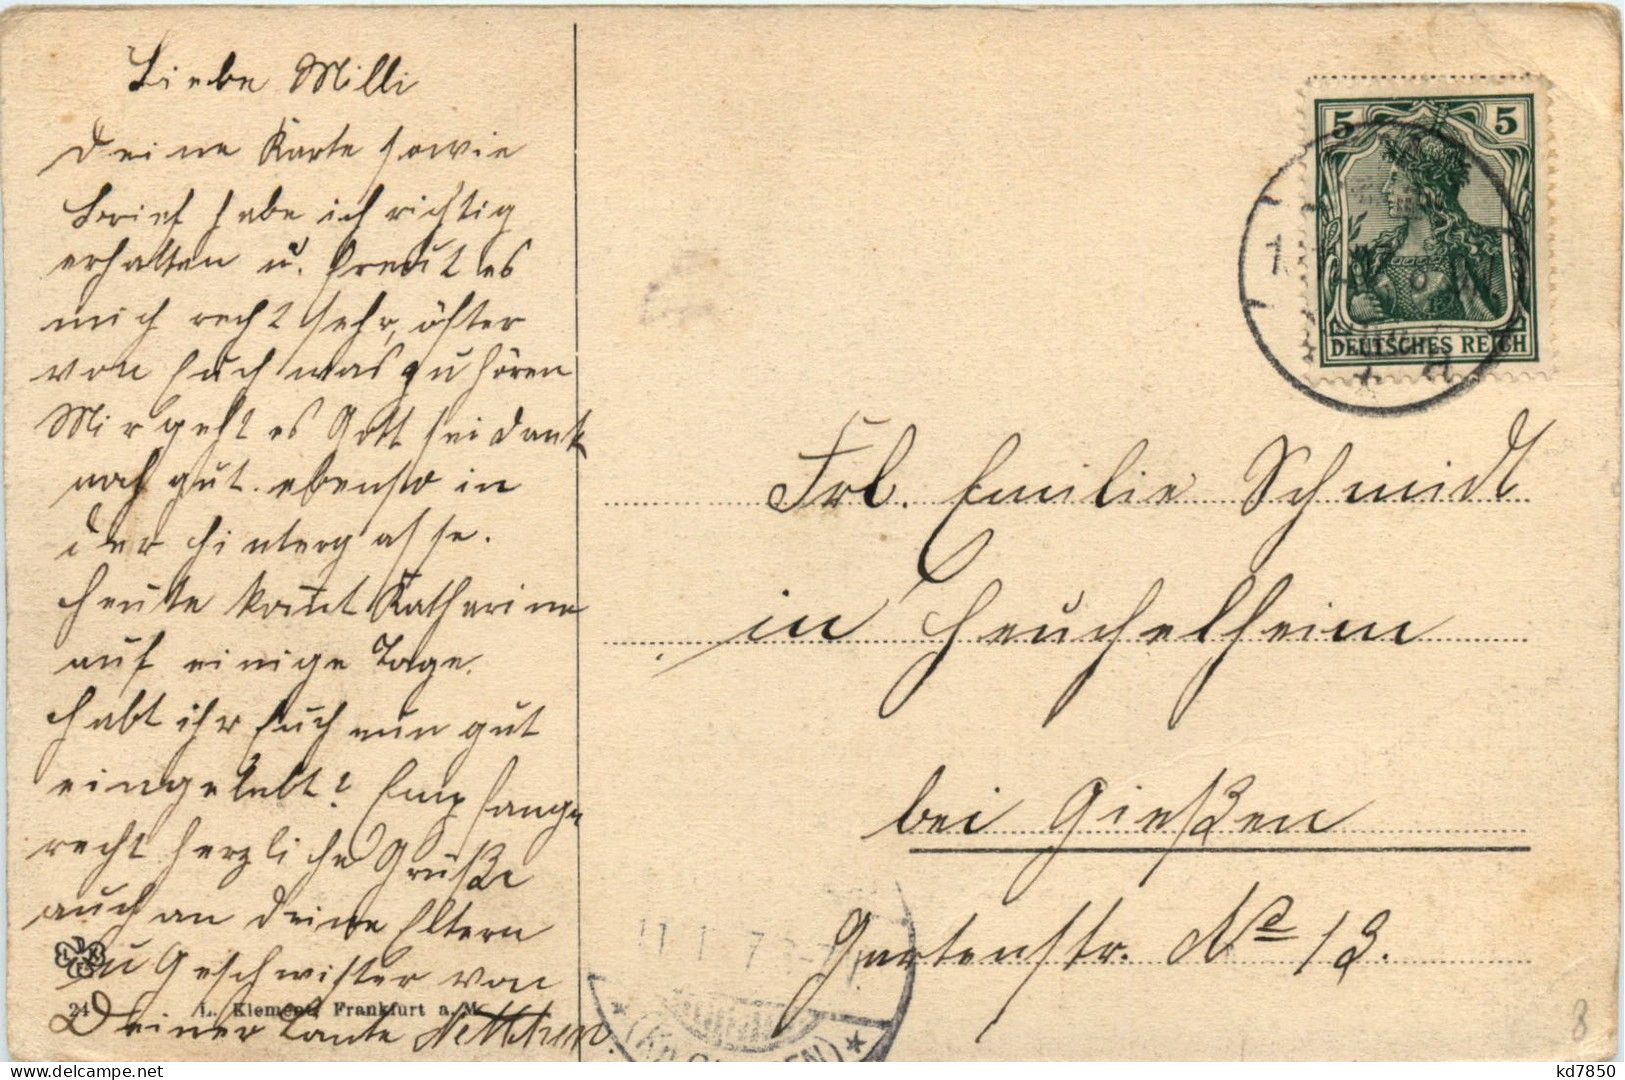 Liebe Milli
Deine Karte sowie
Brief habe ich richtig
erhalten u. freut es
mich recht sehr, öfter
von Euch was zu hören
Mir geht es Gott sei dank
noch gut. ebenso in
der Hintergasse.
Heute kom̄t Katharine
auf einige Tage.
Habt ihr Euch nun gut
eingelebt? Empfange
recht herzliche Grüße
auch an deine Eltern
u Geschwister von
Deiner Tante
24 L. Klement, Frankfurt a. M.
5 5
DEUTSCHES REICH
Frl. Emilie Schmidt
in Heuchelheim
bei Gießen
Gartenstr. No 13.
8
kd7850